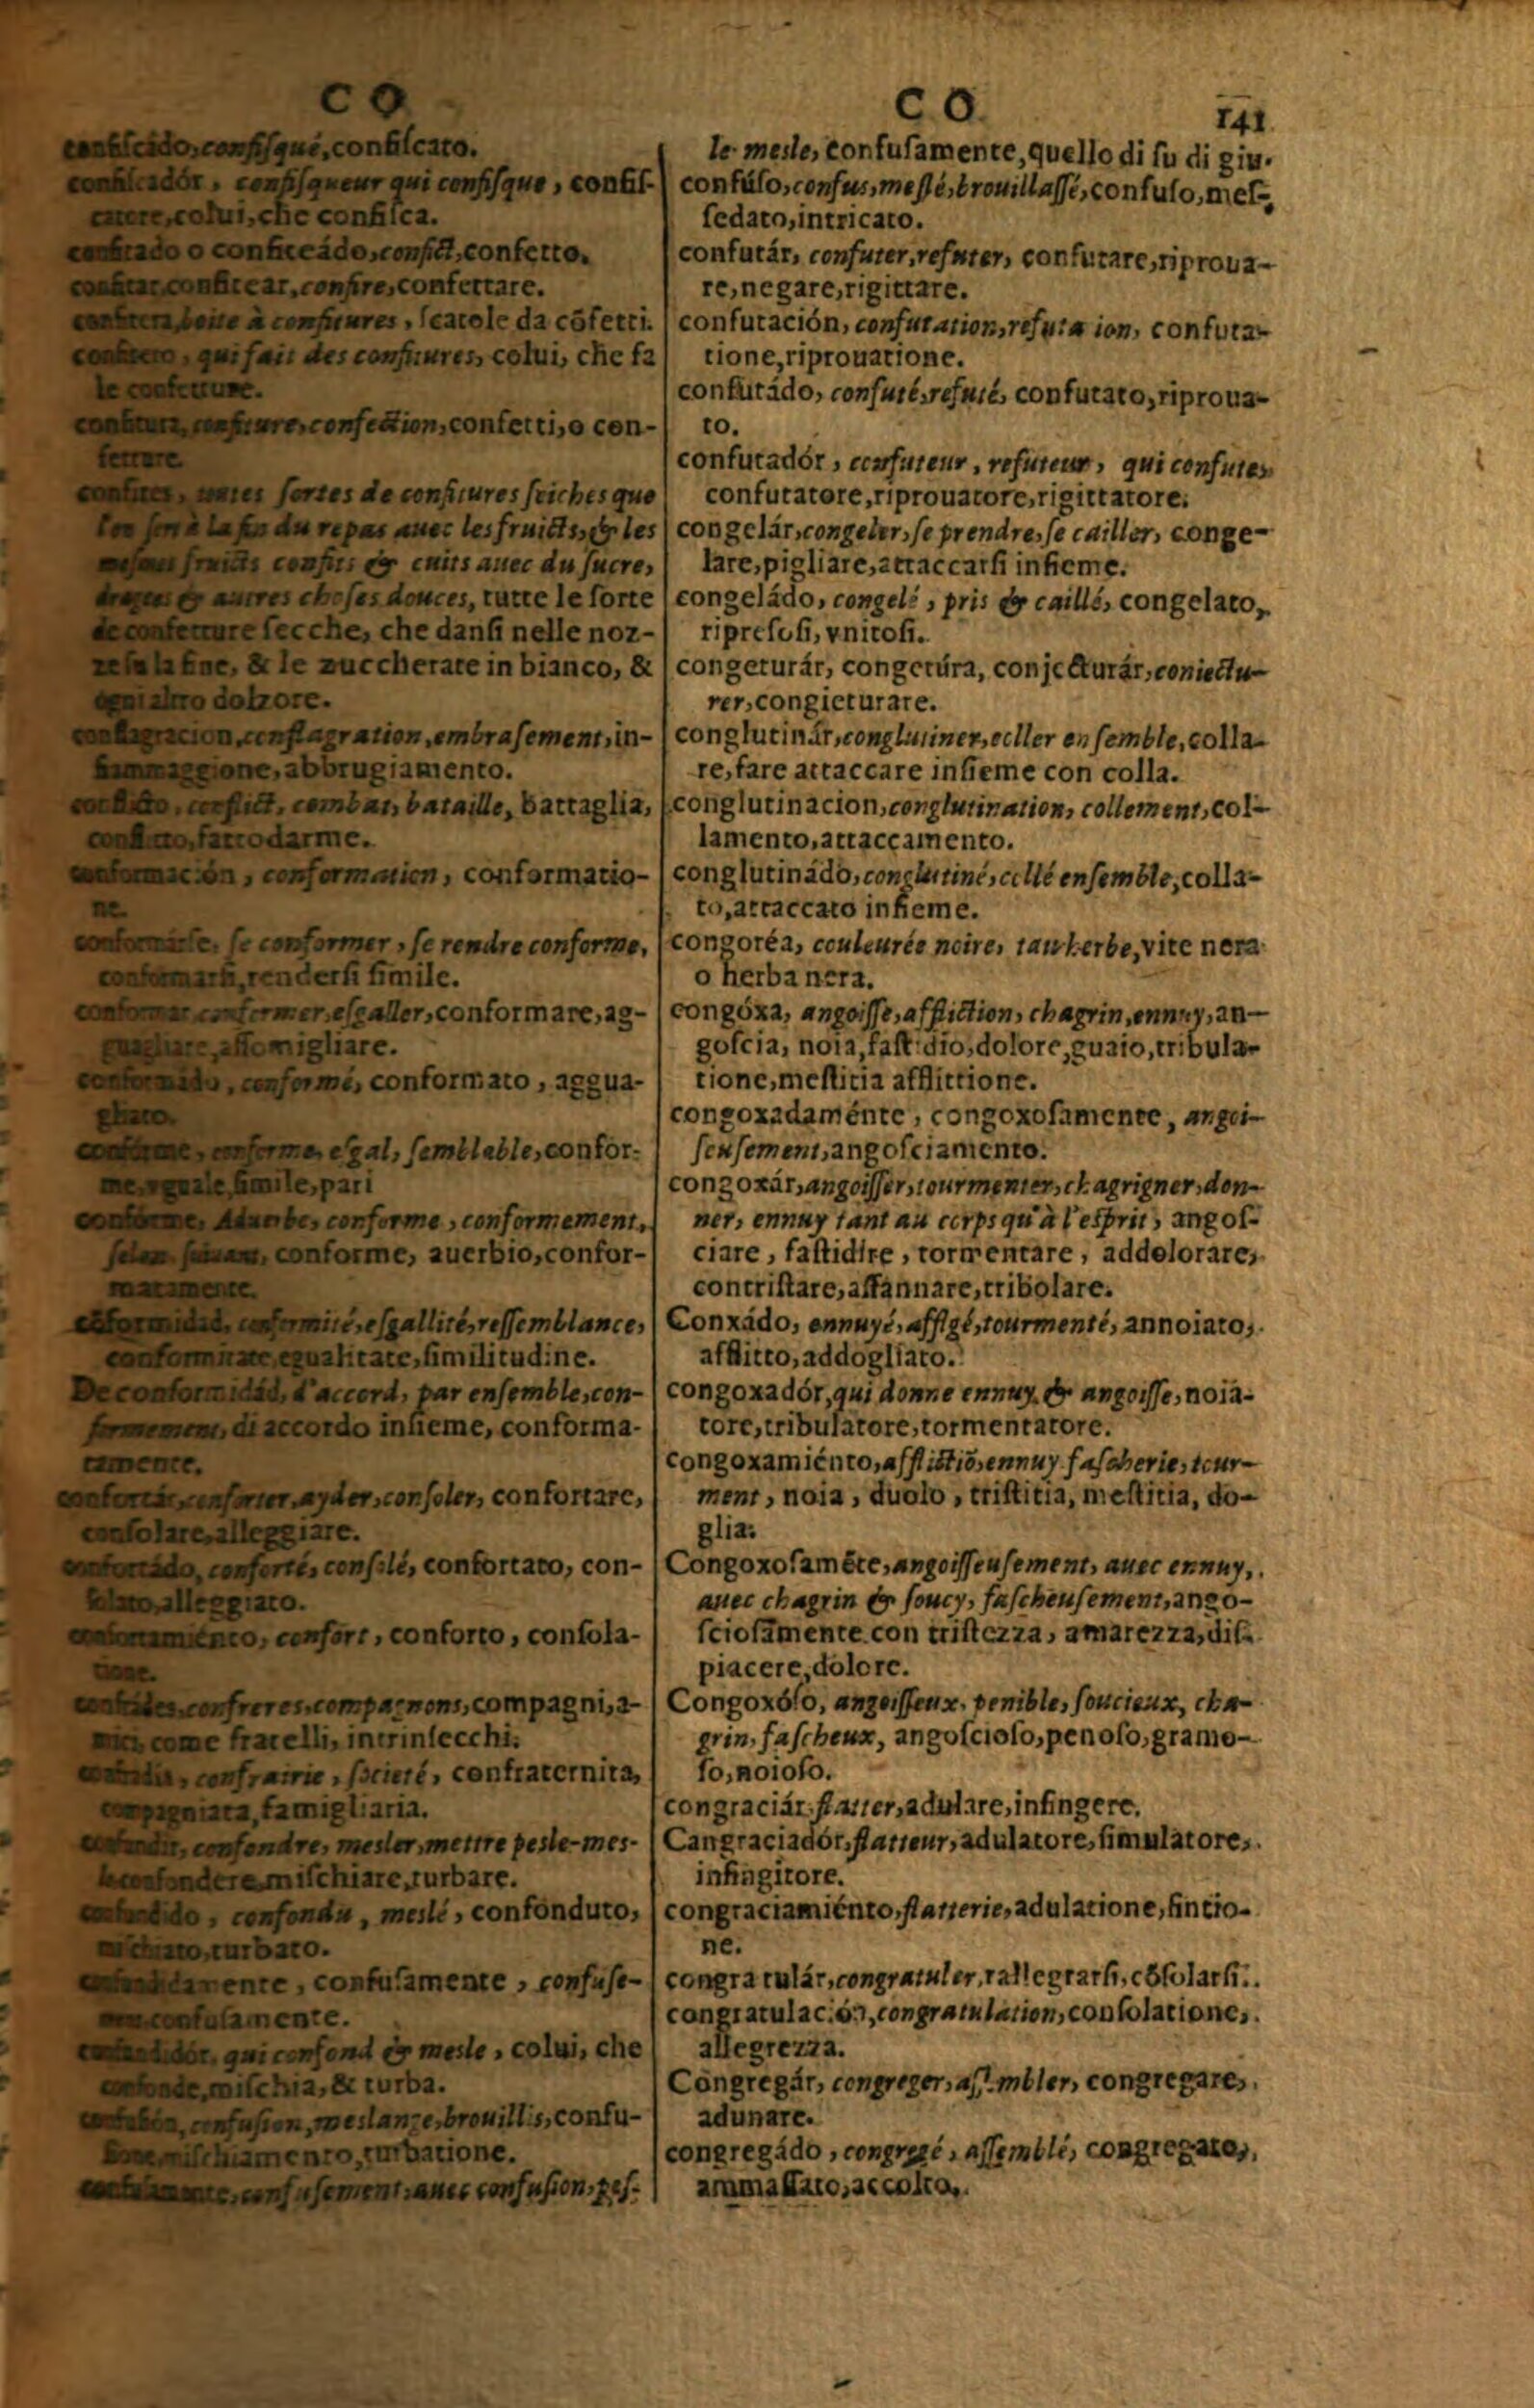 C O
confiſcádo, confiſqué, confiſcato.
confiſcadór, confiſqueur qui confiſque, confiſ-
catore, colui, che confiſca.
confitado o conficeádo, confict, confetto.
confitar, conficear, confire, confettare.
confitera, boite à confitures, ſcatole da cõfetti.
confitero, qui fait des confitures, colui, che fa
le confetture.
confitura, confiture, confection, confetti, o con-
fettare.
confites, toutes ſortes de confitures ſeiches que
l'on ſert à la fin du repas auec les fruicts, & les
meſmes fruicts confits & cuits auec du ſucre,
dragees & autres choſes douces, tutte le ſorte
de confetture ſecche, che danſi nelle noz-
ze ſu la fine, & le zuccherate in bianco, &
ogni altro dolzore.
conflagracion, conflagration, embraſement, in-
fiammaggione, abbrugiamento.
conflicto, conflict, combat, bataille, battaglia,
conflitto, fatto darme.
conformación, conformation, conformatio-
ne.
conformarſe, ſe conformer, ſe rendre conforme,
conformarſi, renderſi ſimile.
conformar, conformer, eſgaller, conformare, ag-
guagliare, aſſomigliare.
conformádo, conformé, conformato, aggua-
gliato.
confórme, conforme, eſgal, ſemblable, confor-
me, vguale, ſimile, pari
confórme, Aduerbe, conforme, conformement,
ſelon, ſuiuant, conforme, auerbio, confor-
matamente.
cõformidad, conformité, eſgallité, reſſemblance,
conformitate, egualitate, ſimilitudine.
De conformidád, d'accord, par enſemble, con-
formement, di accordo inſieme, conforma-
tamente.
confortár, conforter, ayder, conſoler, confortare,
conſolare, alleggiare.
confortádo, conforté, conſolé, confortato, con-
ſolato, alleggiato.
confortamiénto, confort, conforto, conſola-
tione.
confrades, confreres, compagnons, compagni, a-
mici, come fratelli, intrinſecchi.
confradia, confrairie, ſocieté, confraternita,
compagniata, famigliaria.
confundir, confondre, mesler, mettre pesle-mes-
le, confondere, miſchiare, turbare.
confundido, confondu, meslé, confonduto,
miſchiato, turbato.
confundidamente, confuſamente, confuſe-
ment, confuſamente.
confundidór, qui confond & mesle, colui, che
confonde, miſchia, & turba.
confuſión, confuſion, meslange, brouillis, confu-
ſione, miſchiamento, turbatione.
confuſamente, confuſement, auec confuſion, peſ-
C O
141
le mesle, confuſamente, quello di ſu di giu.
confúſo, confus, meſlé, brouillaſſé, confuſo, meſ-
ſedato, intricato.
confutár, confuter, refuter, confutare, riproua-
re, negare, rigittare.
confutación, confutation, refutation, confuta-
tione, riprouatione.
confutádo, confuté, refuté, confutato, riproua-
to.
confutadór, confuteur, refuteur, qui confute,
confutatore, riprouatore, rigittatore.
congelár, congeler, ſe prendre, ſe cailler, conge-
lare, pigliare, attaccarſi inſieme.
congeládo, congelé, pris & caillé, congelato,
ripreſoſi, vnitoſi.
congeturár, congetúra, conjecturár, coniectu-
rer, congietturare.
conglutinár, conglutiner, coller enſemble, colla-
re, fare attaccare inſieme con colla.
conglutinacion, conglutination, collement, col-
lamento, attaccamento.
conglutinádo, conglutiné, collé enſemble, colla-
to, attaccato inſieme.
congoréa, couleurée noire, tauherbe, vite nera
o herba nera.
congóxa, angoiſſe, affliction, chagrin, ennuy, an-
goſcia, noia, faſtidio, dolore, guaio, tribula-
tione, meſtitia afflittione.
congoxadaménte, congoxoſamente, angoi-
ſeuſement, angoſciamento.
congoxár, angoiſſer, tourmenter, chagrigner, don-
ner, ennuy tant au corps qu'à l'eſprit, angoſ-
ciare, faſtidire, tormentare, addolorare,
contriſtare, affannare, tribolare.
Conxádo, ennuyé, affligé, tourmenté, annoiato,
afflitto, addogliato.
congoxadór, qui donne ennuy & angoiſſe, noia-
tore, tribulatore, tormentatore.
congoxamiénto, afflictiõ, ennuy faſcherie, tour-
ment, noia, duolo, triſtitia, meſtitia, do-
glia.
Congoxoſamẽte, angoiſſeuſement, auec ennuy,
auec chagrin & ſoucy, faſcheuſement, ango-
ſcioſamente con triſtezza, amarezza, diſ-
piacere, dolore.
Congoxóſo, angoiſſeux, penible, ſoucieux, cha-
grin, faſcheux, angoſcioſo, penoſo, gramo-
ſo, noioſo.
congraciár, flatter, adulare, infingere.
Cangraciadór, flatteur, adulatore, ſimulatore,
infingitore.
congraciamiénto, flatterie, adulatione, fintio-
ne.
congratulár, congratuler, rallegrarſi, cõſolarſi.
congratulación, congratulation, conſolatione,
allegrezza.
Congregár, congreger, aſſembler, congregare,
adunare.
congregádo, congregé, aſſemblé, congregato,
ammaſſato, accolto.